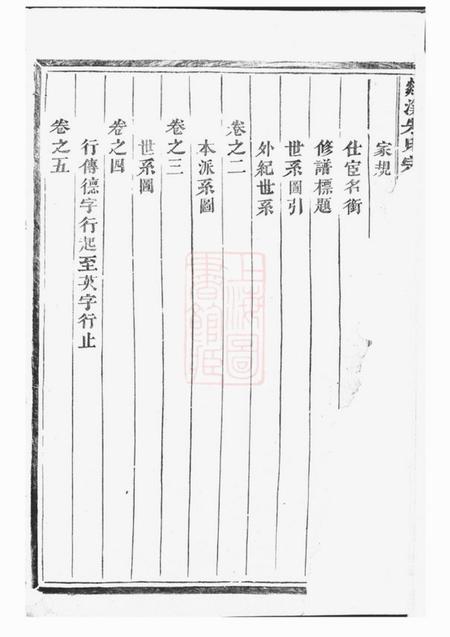 家規
仕宦名銜
修譜標題
世系圖引
外紀世系
卷之二
本派系圖
卷之三
世系圖
卷之四
行傳德字行起至英字行止
卷之五
上海圖書館藏